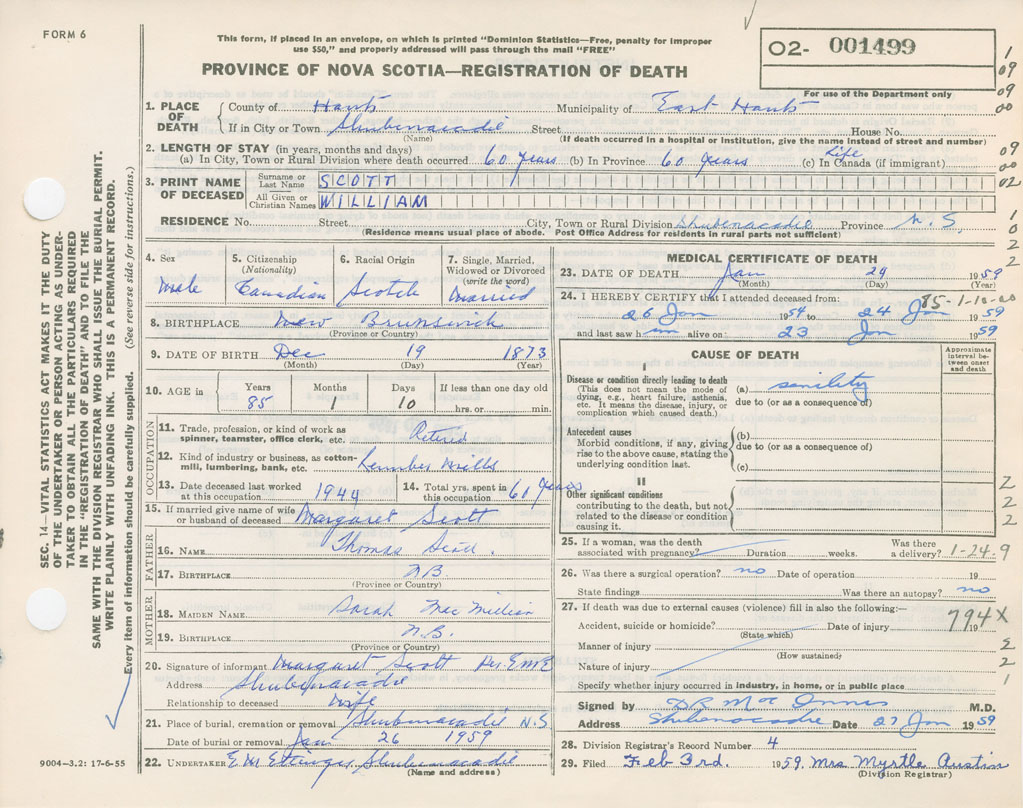 FORM 6
This form, if placed in an envelope, on which is printed "Dominion Statistics—Free, penalty for improper
use $50," and properly addressed will pass through the mail "FREE"
PROVINCE OF NOVA SCOTIA—REGISTRATION OF DEATH
O2- 001499
For use of the Department only
1
09
09
00
09
00
02
1
0
2
2
SEC. 14—VITAL STATISTICS ACT MAKES IT THE DUTY
OF THE UNDERTAKER OR PERSON ACTING AS UNDER-
TAKER TO OBTAIN ALL THE PARTICULARS REQUIRED
IN THE "REGISTRATION OF DEATH" AND TO FILE THE
SAME WITH THE DIVISION REGISTRAR WHO SHALL ISSUE THE BURIAL PERMIT.
WRITE PLAINLY WITH UNFADING INK. THIS IS A PERMANENT RECORD.
Every item of information should be carefully supplied. (See reverse side for instructions.)
1. PLACE OF DEATH County of Hants Municipality of East Hants
If in City or Town Shubenacadie Street House No.
(Name) (If death occurred in a hospital or institution, give the name instead of street and number)
2. LENGTH OF STAY (in years, months and days)
(a) In City, Town or Rural Division where death occurred 60 years (b) In Province 60 years (c) In Canada (if immigrant) Life
3. PRINT NAME OF DECEASED
Surname or Last Name SCOTT
All Given or Christian Names WILLIAM
RESIDENCE No. Street City, Town or Rural Division Shubenacadie Province N.S.
(Residence means usual place of abode. Post Office Address for residents in rural parts not sufficient)
4. Sex
Male
5. Citizenship
(Nationality)
Canadian
6. Racial Origin
Scotch
7. Single, Married,
Widowed or Divorced
(write the word)
Married
8. BIRTHPLACE New Brunswick
(Province or Country)
9. DATE OF BIRTH Dec 19 1873
(Month) (Day) (Year)
10. AGE in
Years Months Days If less than one day old
85 1 10 hrs. or min.
OCCUPATION
11. Trade, profession, or kind of work as
spinner, teamster, office clerk, etc. Retired
12. Kind of industry or business, as cotton-
mill, lumbering, bank, etc. Lumber Mills
13. Date deceased last worked
at this occupation 1944
14. Total yrs. spent in
this occupation 60 years
15. If married give name of wife
or husband of deceased Margaret Scott
FATHER
16. NAME Thomas Scott.
17. BIRTHPLACE N.B.
(Province or Country)
MOTHER
18. MAIDEN NAME Sarah
19. BIRTHPLACE N.B.
(Province or Country)
20. Signature of informant Margaret Scott Per E M E
Address Shubenacadie
Relationship to deceased wife
21. Place of burial, cremation or removal Shubenacadie N.S
Date of burial or removal Jan 26 1959
22. UNDERTAKER E.M Ettinger Shubenacadie
(Name and address)
9004—3.2: 17-6-55
MEDICAL CERTIFICATE OF DEATH
23. DATE OF DEATH Jan 29 1959
(Month) (Day) (Year)
85-1-10-00
24. I HEREBY CERTIFY that I attended deceased from:
26 Jan 1954 to 24 Jan 1959
and last saw him alive on: 23 Jan 1959
CAUSE OF DEATH
Approximate
interval be-
tween onset
and death
I
Disease or condition directly leading to death
(This does not mean the mode of
dying, e.g., heart failure, asthenia,
etc. It means the disease, injury, or
complication which caused death.)
(a) senility
due to (or as a consequence of)
Antecedent causes
Morbid conditions, if any, giving
rise to the above cause, stating the
underlying condition last.
(b)
due to (or as a consequence of)
(c)
II
Other significant conditions
contributing to the death, but not
related to the disease or condition
causing it.
2
2
2
25. If a woman, was the death
associated with pregnancy? Duration weeks. Was there
a delivery? 1-24.9
26. Was there a surgical operation? no Date of operation 19
State findings Was there an autopsy? no
27. If death was due to external causes (violence) fill in also the following:—
Accident, suicide or homicide? Date of injury 19
794X
(State which)
Manner of injury 2
(How sustained)
Nature of injury 2
1
Specify whether injury occurred in industry, in home, or in public place
Signed by D R Mac Innes M.D.
Address Shubenacadie Date 27 Jan 1959
28. Division Registrar's Record Number 4
29. Filed Feb 3rd. 1959. Mrs Myrtle Austin
(Division Registrar)